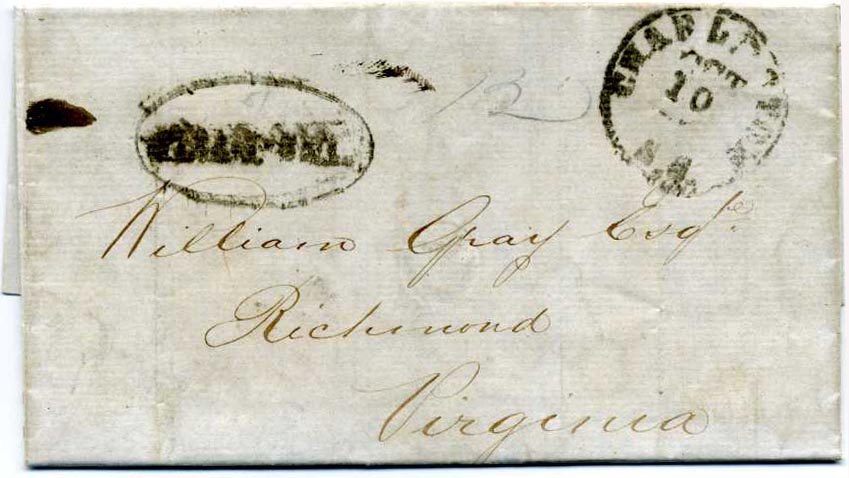 CHARLESTON
OCT
10
William Gray Esqre
Richmond
Virginia